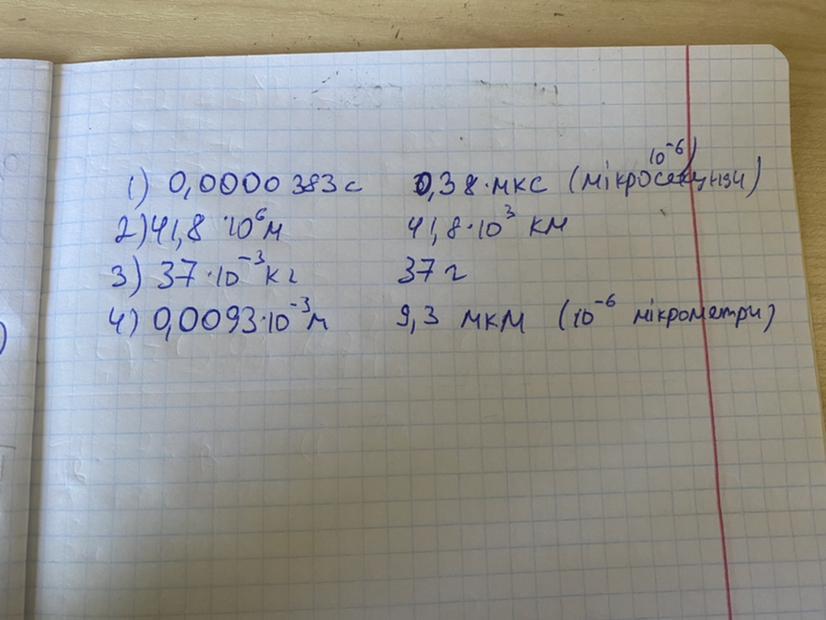 10⁻⁶
1) 0,0000383 с 0,38·мкс (мікросекунди)
2) 41,8·10⁶ м 41,8·10³ км
3) 37·10⁻³ кг 37 г
4) 0,0093·10⁻³ м 9,3 мкм (10⁻⁶ мікрометри)